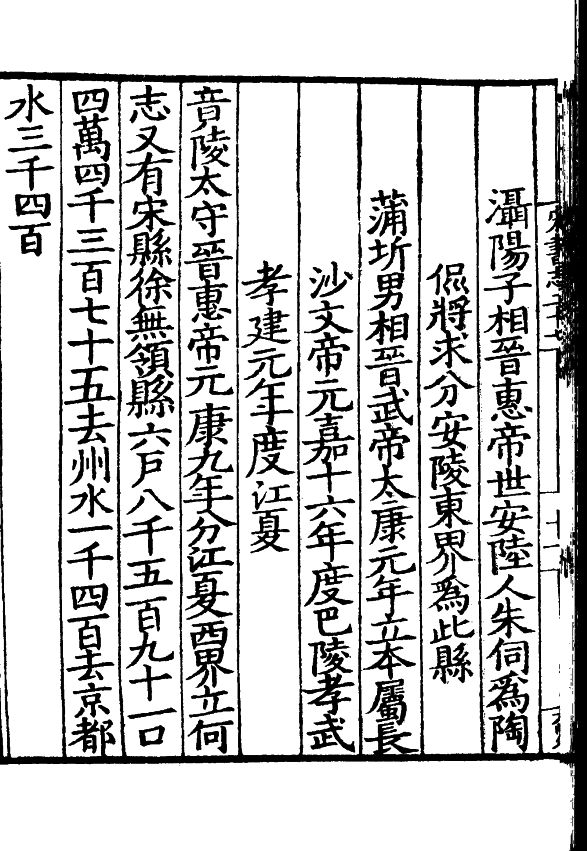 灄陽子相晉惠帝世安陸人朱伺爲陶
侃將求分安陵東界爲此縣
蒲圻男相晉武帝太康元年立本屬長
沙文帝元嘉十六年度巴陵孝武
孝建元年度江夏
竟陵太守晉惠帝元康九年分江夏西界立何
志又有宋縣徐無領縣六戶八千五百九十一口
四萬四千三百七十五去州水一千四百去京都
水三千四百